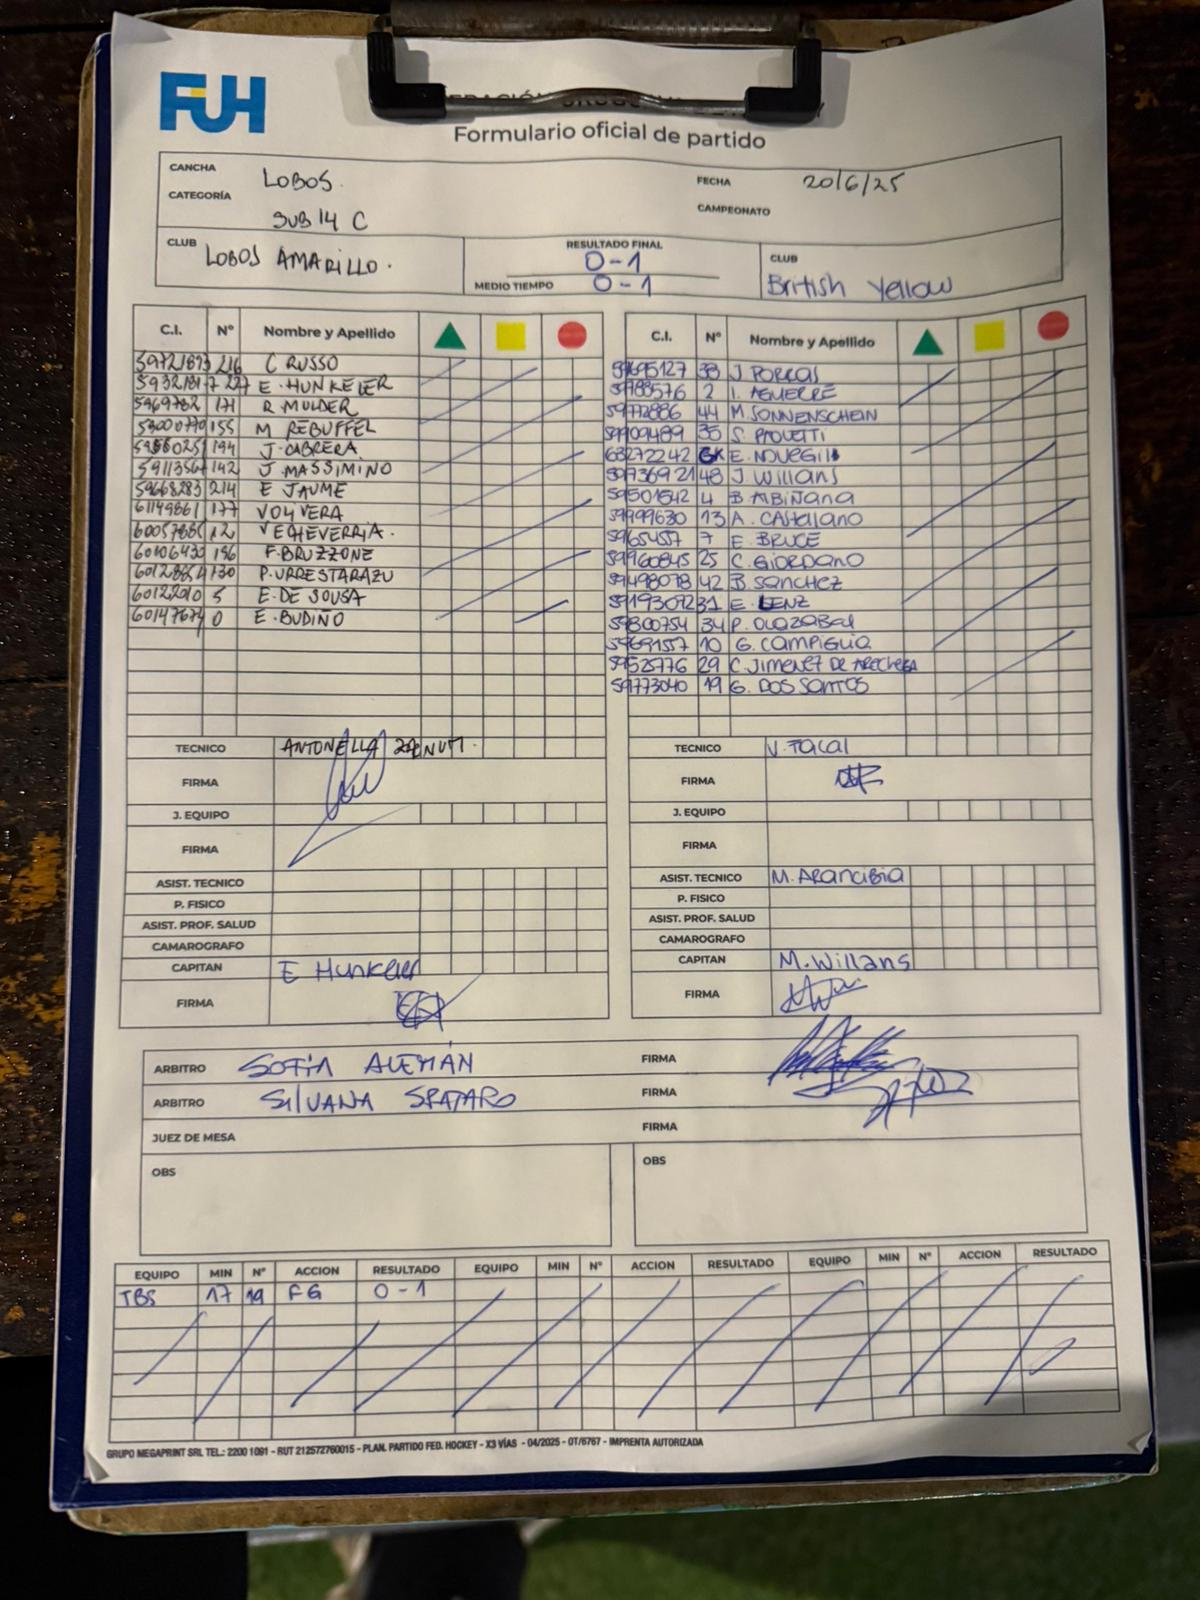 FUH
Formulario oficial de partido
CANCHA LOBOS. FECHA 20/6/25
CATEGORÍA SUB 14 C CAMPEONATO
CLUB LOBOS AMARILLO. RESULTADO FINAL 0-1 CLUB British Yellow
MEDIO TIEMPO 0-1
C.I. Nº Nombre y Apellido
216 C RUSSO
227 E. HUNKELER
5969782 171 R. MULDER
53000770 155 M REBUFFEL
194 J. CABRERA
142 J. MASSIMINO
59668283 214 E JAUME
61149861 177 V OLIVERA
12 V ECHEVERRIA.
60106430 196 F. BRUZZONE
130 P. URRESTARAZU
5 E. DE SOUSA
0 E. BUDIÑO
TECNICO ANTONELLA
FIRMA
J. EQUIPO
FIRMA
ASIST. TECNICO
P. FISICO
ASIST. PROF. SALUD
CAMAROGRAFO
CAPITAN E Hunkeler
FIRMA
C.I. Nº Nombre y Apellido
59695127 38 J. PORRAS
59783576 2 I. AGUERRE
59772886 44 M. SONNENSCHEIN
59909489 35 S. PAOLETTI
63272242 GK E. NOVEGIL
59736921 48 J. Willans
59501542 4 B. ALBIÑANA
59999630 13 A. CASTELLANO
5965457 7 E. BRUCE
59960845 25 C. GIORDANO
59498078 42 B. SANCHEZ
59193092 31 E. LENZ
59800754 34 P. OLAZABAL
59691557 10 G. CAMPIGLIA
59525776 29 C. JIMENEZ DE ARECHEGA
59773040 19 G. DOS SANTOS
TECNICO V. TACAL
FIRMA
J. EQUIPO
FIRMA
ASIST. TECNICO M. Arancibia
P. FISICO
ASIST. PROF. SALUD
CAMAROGRAFO
CAPITAN M. Willans
FIRMA
ARBITRO SOFÍA ALEMÁN FIRMA
ARBITRO SILVANA SPATARO FIRMA
JUEZ DE MESA FIRMA
OBS OBS
EQUIPO MIN Nº ACCION RESULTADO EQUIPO MIN Nº ACCION RESULTADO EQUIPO MIN Nº ACCION RESULTADO
TBS 17 19 FG 0-1
GRUPO MEGAPRINT SRL TEL.: 2200 1091 - RUT 212572760015 - PLAN. PARTIDO FED. HOCKEY - X3 VÍAS - 04/2025 - OT/6767 - IMPRENTA AUTORIZADA